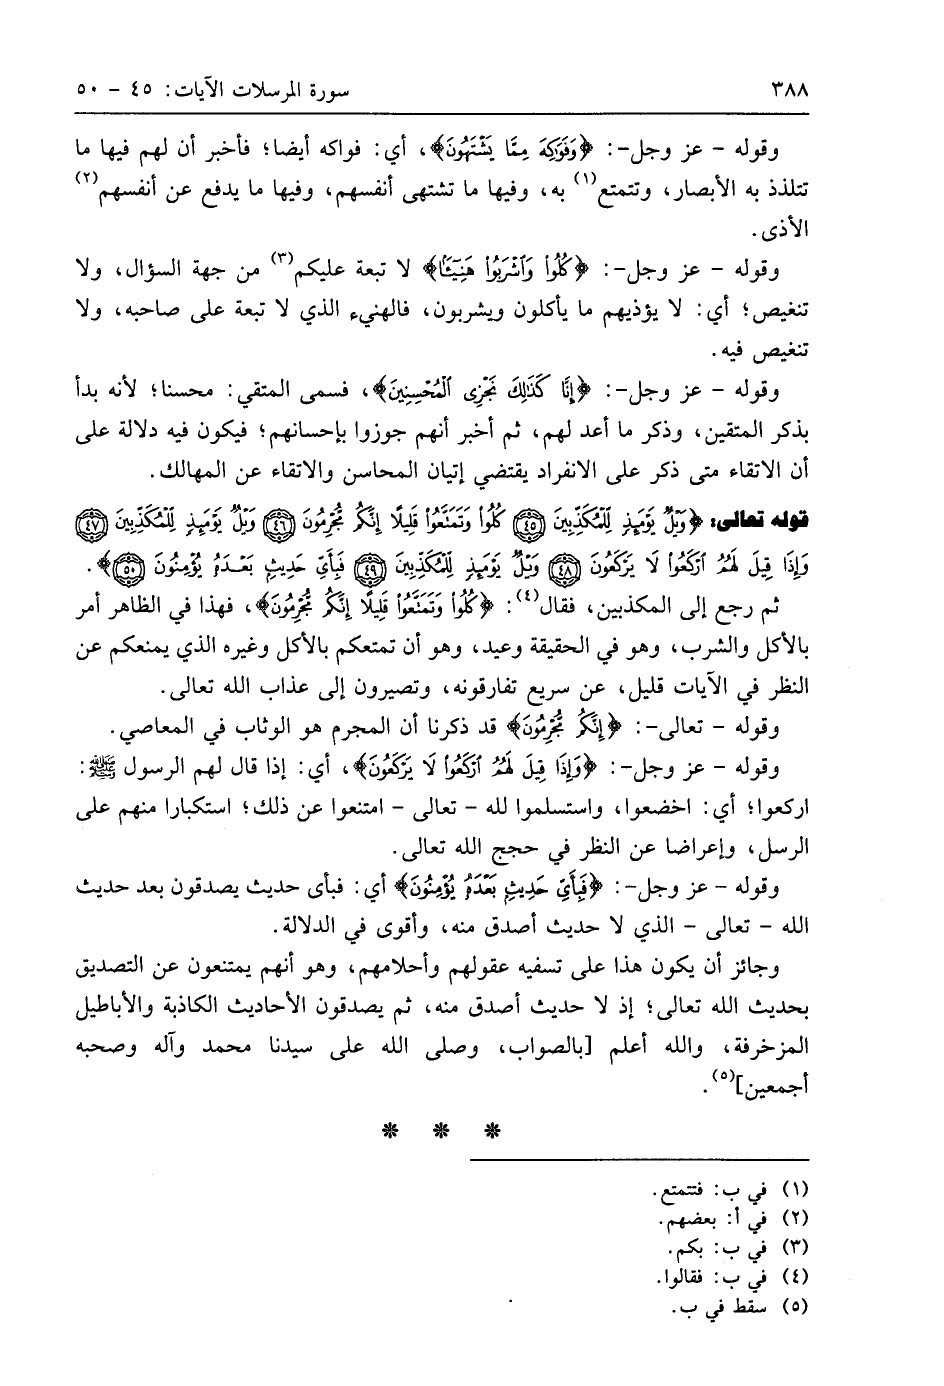 ٣٨٨ سورة المرسلات الآيات: ٤٥ - ٥٠
وقوله - عز وجل-: ﴿وَفَوَٰكِهَ مِمَّا يَشْتَهُونَ﴾، أي: فواكه أيضا؛ فأخبر أن لهم فيها ما
تتلذذ به الأبصار، وتتمتع(١) به، وفيها ما تشتهى أنفسهم، وفيها ما يدفع عن أنفسهم(٢)
الأذى.
وقوله - عز وجل-: ﴿كُلُواْ وَٱشْرَبُواْ هَنِيٓـَٔۢا﴾ لا تبعة عليكم(٣) من جهة السؤال، ولا
تنغيص؛ أي: لا يؤذيهم ما يأكلون ويشربون، فالهنيء الذي لا تبعة على صاحبه، ولا
تنغيص فيه.
وقوله - عز وجل-: ﴿إِنَّا كَذَٰلِكَ نَجْزِى ٱلْمُحْسِنِينَ﴾، فسمى المتقي: محسنا؛ لأنه بدأ
بذكر المتقين، وذكر ما أعد لهم، ثم أخبر أنهم جوزوا بإحسانهم؛ فيكون فيه دلالة على
أن الاتقاء متى ذكر على الانفراد يقتضي إتيان المحاسن والاتقاء عن المهالك.
قوله تعالى: ﴿وَيْلٌ يَوْمَئِذٍ لِّلْمُكَذِّبِينَ ٤٥ كُلُواْ وَتَمَتَّعُواْ قَلِيلًا إِنَّكُم مُّجْرِمُونَ ٤٦ وَيْلٌ يَوْمَئِذٍ لِّلْمُكَذِّبِينَ ٤٧
وَإِذَا قِيلَ لَهُمُ ٱرْكَعُواْ لَا يَرْكَعُونَ ٤٨ وَيْلٌ يَوْمَئِذٍ لِّلْمُكَذِّبِينَ ٤٩ فَبِأَيِّ حَدِيثٍۭ بَعْدَهُۥ يُؤْمِنُونَ ٥٠﴾.
ثم رجع إلى المكذبين، فقال(٤): ﴿كُلُواْ وَتَمَتَّعُواْ قَلِيلًا إِنَّكُم مُّجْرِمُونَ﴾، فهذا في الظاهر أمر
بالأكل والشرب، وهو في الحقيقة وعيد، وهو أن تمتعكم بالأكل وغيره الذي يمنعكم عن
النظر في الآيات قليل، عن سريع تفارقونه، وتصيرون إلى عذاب الله تعالى.
وقوله - تعالى-: ﴿إِنَّكُم مُّجْرِمُونَ﴾ قد ذكرنا أن المجرم هو الوثاب في المعاصي.
وقوله - عز وجل-: ﴿وَإِذَا قِيلَ لَهُمُ ٱرْكَعُواْ لَا يَرْكَعُونَ﴾، أي: إذا قال لهم الرسول ﷺ:
اركعوا؛ أي: اخضعوا، واستسلموا لله - تعالى - امتنعوا عن ذلك؛ استكبارا منهم على
الرسل، وإعراضا عن النظر في حجج الله تعالى.
وقوله - عز وجل-: ﴿فَبِأَيِّ حَدِيثٍۭ بَعْدَهُۥ يُؤْمِنُونَ﴾ أي: فبأى حديث يصدقون بعد حديث
الله - تعالى - الذي لا حديث أصدق منه، وأقوى في الدلالة.
وجائز أن يكون هذا على تسفيه عقولهم وأحلامهم، وهو أنهم يمتنعون عن التصديق
بحديث الله تعالى؛ إذ لا حديث أصدق منه، ثم يصدقون الأحاديث الكاذبة والأباطيل
المزخرفة، والله أعلم [بالصواب، وصلى الله على سيدنا محمد وآله وصحبه
أجمعين](٥).
* * *
(١) في ب: فتتمتع.
(٢) في أ: بعضهم.
(٣) في ب: بكم.
(٤) في ب: فقالوا.
(٥) سقط في ب.